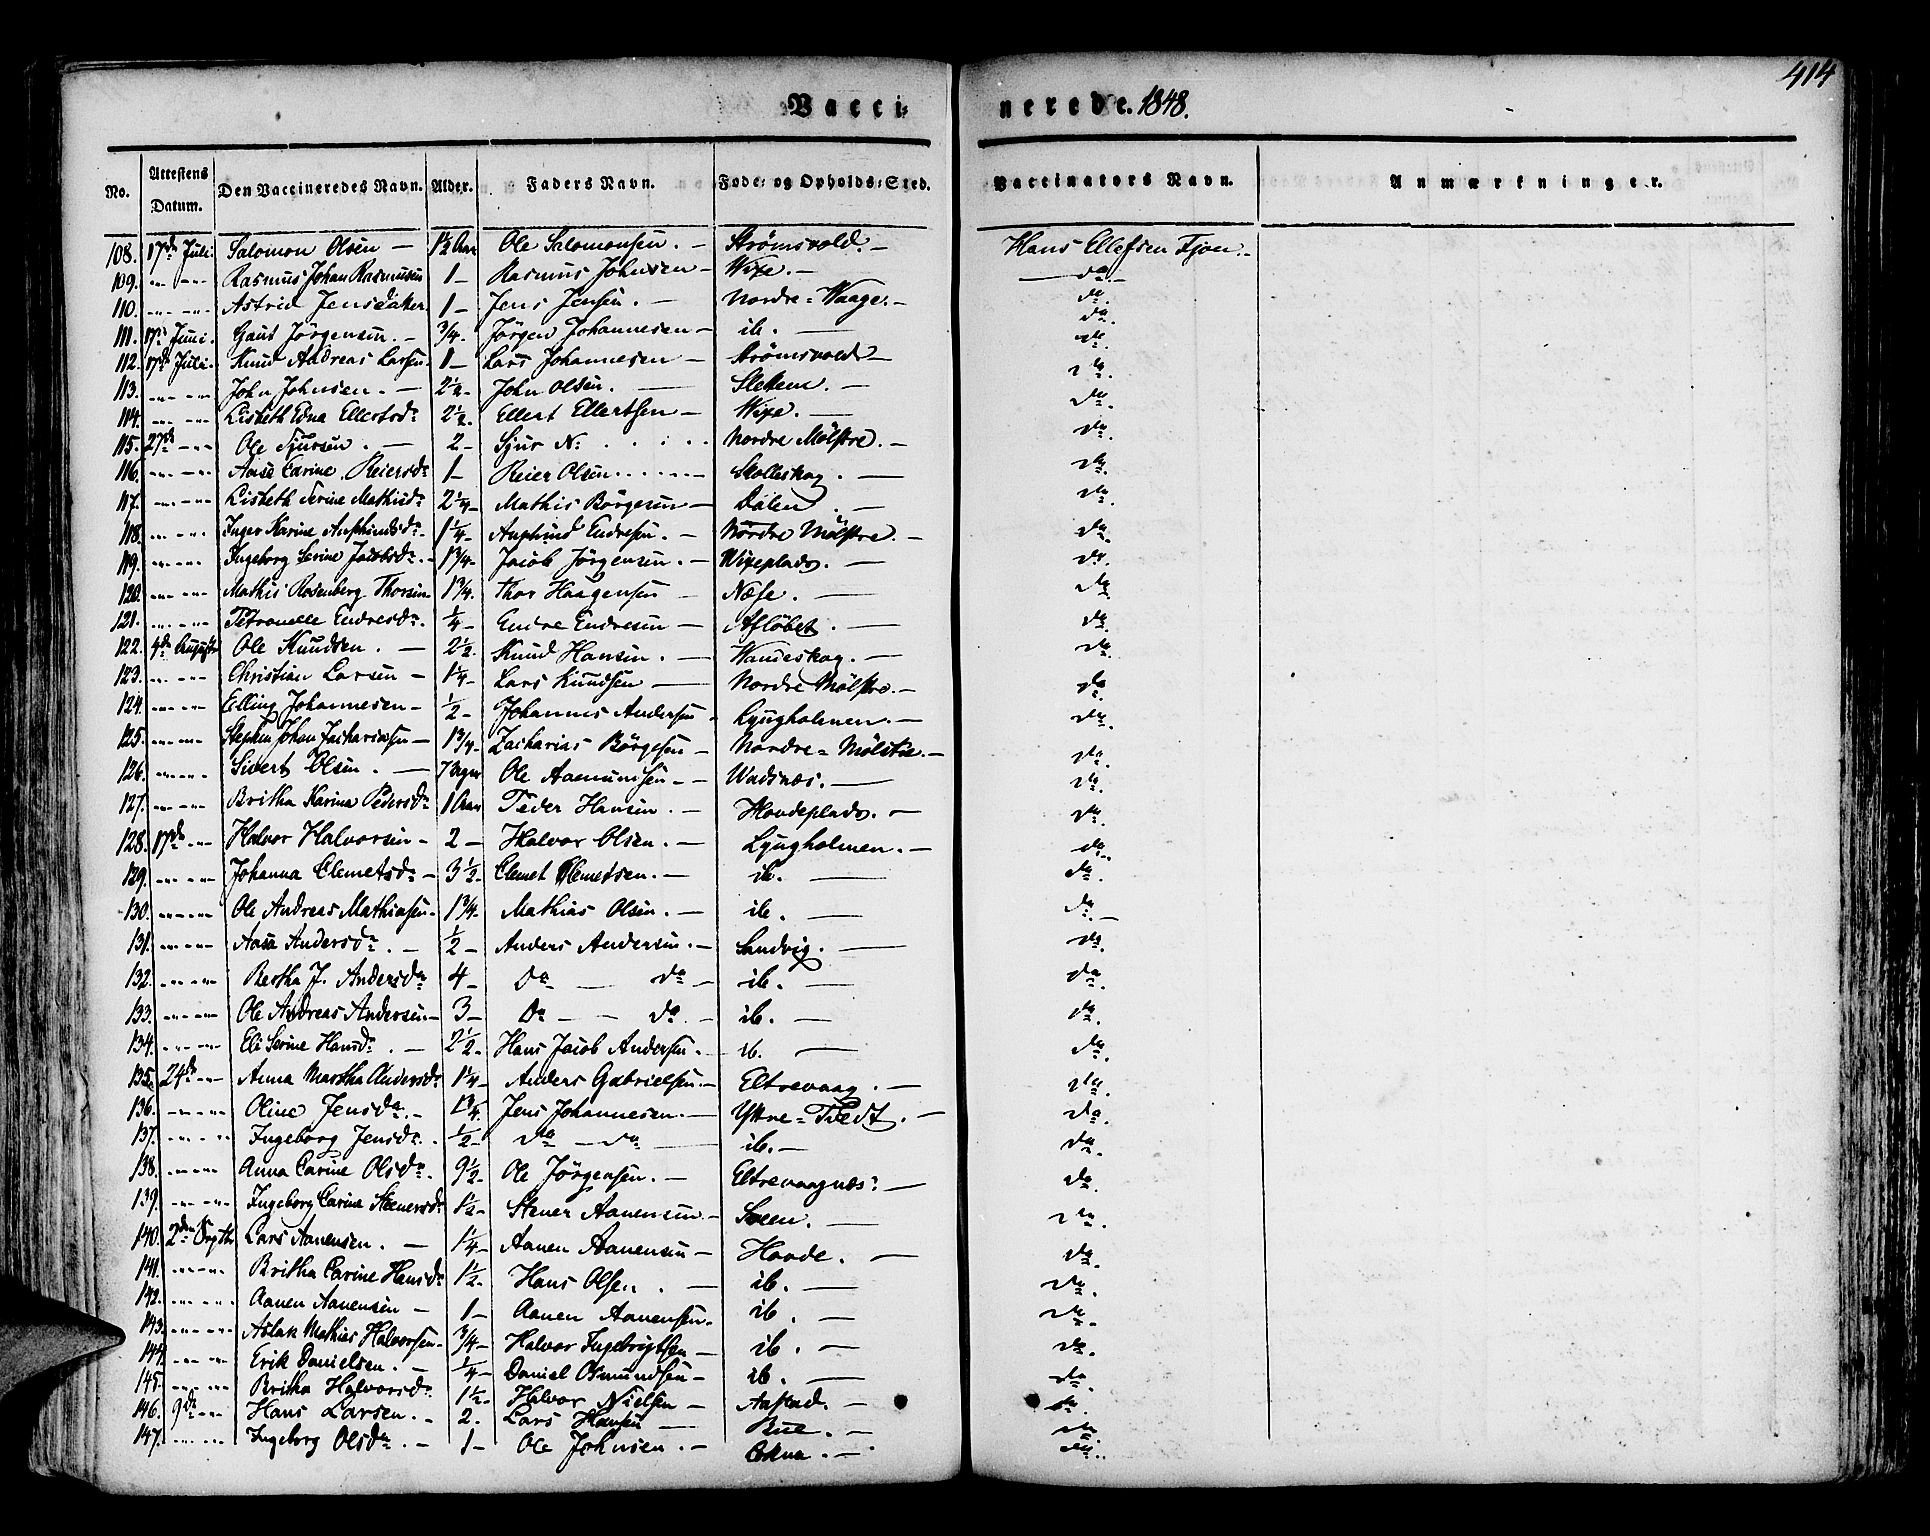 414
Vacci- nerede. 1848.
No. | Attestens Datum. | Den Vaccineredes Navn. | Alder. | Faders Navn. | Føde- og Opholds-Sted. | Vaccinators Navn. | Anmærkninger.
108. 17de Juli. Salomon Olsen — 1½ Aar Ole Salomonsen. — Strømsvold. — Hans Ellefsen Tjon. —
109. „ „ Rasmus Johan Rasmussen 1 — Rasmus Johnsen — Wixe. — do.
110. „ „ Astrid Jensdatter 1 — Jens Jensen. — Nordre-Waage. — do.
111. 17de Juni. Gaut Jörgensen. — ¾. Jörgen Johannesen — ib. — do.
112. 17de Juli. Knud Andreas Larsen. 1 — Lars Johannesen — Strømsvold — do.
113. „ „ John Johnsen. — 2½. John Olsen. — Slettem. — do.
114. „ „ Lisbeth Edna Ellertsdr. 2½. Ellert Ellertsen — Wixe. — do.
115. 27de „ Ole Sjursen. — 2 — Sjur N: . . . . Nordre Mölstre. — do.
116. „ „ Aase Carine Reiersdr 1 — Reier Olsen. . . . . Skolleskog. — do.
117. „ „ Lisbeth Serine Mathisdr 2¼ — Mathis Börgesen — Dalen. — do.
118. „ „ Inger Karine Asphundsdr. 1¼ — Asphund Endresen. — Nordre Mölstre. — do.
119. „ „ Ingeborg Serine Jacobsdr. 1¾ — Jacob Jörgensen. — Wixeplads. — do.
120. „ „ Mathis Rosenberg Thorsen 1¾. Thor Haagensen — Næse. — do.
121. „ „ Petronelle Endresdr. ¼ Endre Endresen — Afløbet. — do.
122. 4de August Ole Knudsen. — 2½. Knud Hansen. — Wandeskog. — do.
123. „ „ Christian Larsen — 1¼ — Lars Knudsen — Nordre Mölstre. — do.
124. „ „ Elling Johannesen — ½ — Johannes Andersen — Lyngholmen. — do.
125. „ „ Stephen Johan Zachariasen — 1¾ — Zacharias Börgesen — Nordre-Mölstre. — do.
126. „ „ Sivert Olsen. — 7 Uger Ole Aamundsen — Wadsnæs. — do.
127. „ „ Britha Karina Pedersdr 1 Aar Peder Hansen. — Hovdeplads. — do.
128. 17de „ Halvor Halvorsen — 2 — Halvor Olsen. — Lyngholmen. — do.
129. „ „ Johanna Clemetsdr — 3½. Clemet Clemetsen. — ib. — do.
130. „ „ Ole Andreas Mathiasen. 1¾. Mathias Olsen. — ib. — do.
131. „ „ Aasa Andersdr. — ½ — Anders Andersen. — Sandvig. — do.
132. „ „ Bertha J. Andersdr 4 — Do — do — ib. — do.
133. „ „ Ole Andreas Andersen. — 3 — Do — do. — ib. — do.
134. „ „ Eli Serine Hansdr. — 2½. Hans Jacob Andersen. — ib. — do.
135. 24de „ Anna Martha Andersdr 1¼ — Anders Gabrielsen. — Eltrevaag. — do.
136. „ „ Oline Jensdr. — 1¾. Jens Johannesen. — Yttre-Tvedt. — do.
137. „ „ Ingeborg Jensdr. ½ — do — do — ib. — do.
138. „ „ Anna Carine Olsdr. 9½. Ole Jörgensen. — Eltrevaagnæs. — do.
139. „ „ Ingeborg Carine Stenersdr 1½ — Stener Aanensen — Sveen. — do.
140. 2den Septbr Lars Aanensen. — 1¼ — Aanen Aanensen — Hovde. — do.
141. „ „ Britha Carine Hansdr 1½. Hans Olsen. — ib. — do.
142. „ „ Aanen Aanensen — 1 — Aanen Aanensen. ib. — do.
143. „ „ Aslak Mathias Halvorsen. ¾ — Halvor Ingebrigtsen — ib. — do.
144. „ „ Erik Danielsen. — ¼ — Daniel Osmundsen — ib. — do.
145. „ „ Britha Halvorsdr 1½. Halvor Nielsen — Aastad. — do.
146. 9de „ Hans Larsen. — 2. Lars Hansen — Bue. — do.
147. „ „ Ingeborg Olsdr. — 1 — Ole Johnsen. — do.